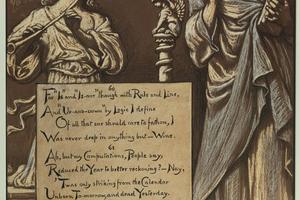 56
For "Is" and "Is-not" though with Rule and Line,
And "Up-and-down" by Logic I define
Of all that one should care to fathom, I
Was never deep in anything but—Wine.
Ah, but my Computations, People say,
Reduced the Year to better reckoning?—Nay,
'Twas only striking from the Calendar
Unborn To-morrow, and dead Yesterday.